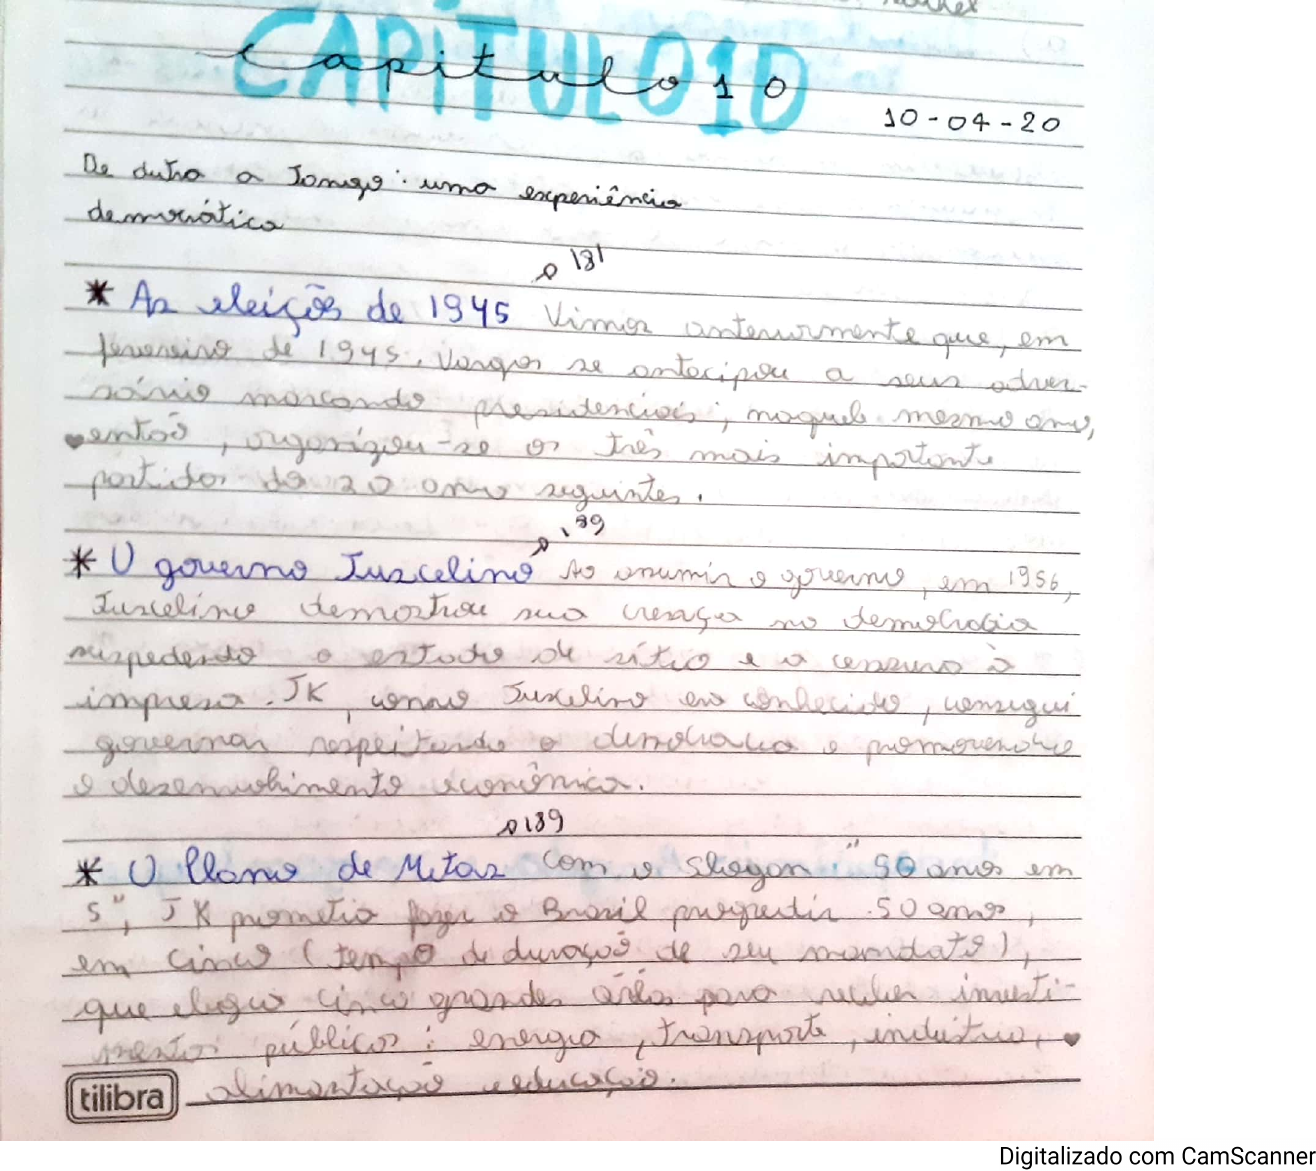 CAPÍTULO 10
Capitulo 10
10-04-20
De dutra a Jango: uma experiência
democrática
181
* As eleições de 1945 Vimos anteriormente que, em
fevereiro de 1945, Vargas se antecipou a seus adver-
sário marcando presidenciais; naquele mesmo ano,
então, organizou-se os três mais importante
partidos do 20 anos seguintes.
189
* O governo Juscelino Ao assumir o governo, em 1956,
Juscelino demostrou sua crença na democracia
suspedendo o estado de sítio e a censura à
impresa. JK, como Juscelino era conhecido, consegui
governar respeitando a democracia e promovendo
o desenvolvimento econômico.
189
* O Plano de Metas Com o slogan "50 anos em
5", JK prometia fazer o Brasil progredir 50 anos,
em cinco (tempo de duração de seu mandato),
que elegeu cinco grandes áreas para receber investi-
mentos públicos: energia, transporte, indústria,
alimentação e educação.
tilibra
Digitalizado com CamScanner